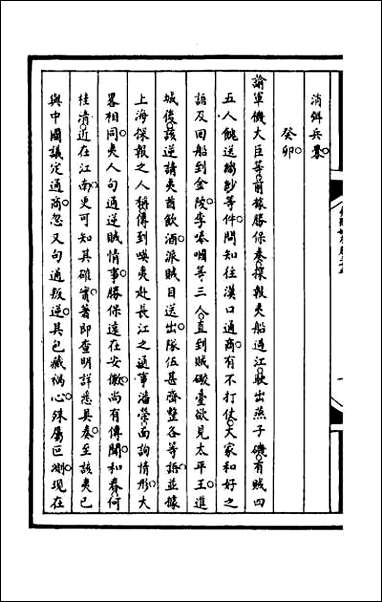 消弭兵釁
癸卯
諭軍機大臣等前據勝保奏探報夷船過江駛出燕子磯有賊四
五人餽送綢鈔等件問知往漢口通商有不打仗大家和好之
語及回船到金陵李嗼唎等三人直到賊礮臺欲見太平王進
城後該逆請夷酋飲酒派賊目送出隊伍甚齊整各等語並據
上海探報之人稱傳到㗆夷赴長江之通事潘榮面詢情形大
畧相同夷人句通逆賊情事勝保遠在安徽尚有傳聞和春何
桂清近在江南更可知其確實著即查明詳悉具奏至該夷已
與中國議定通商忽又句通叛逆其包藏禍心殊屬叵測現在